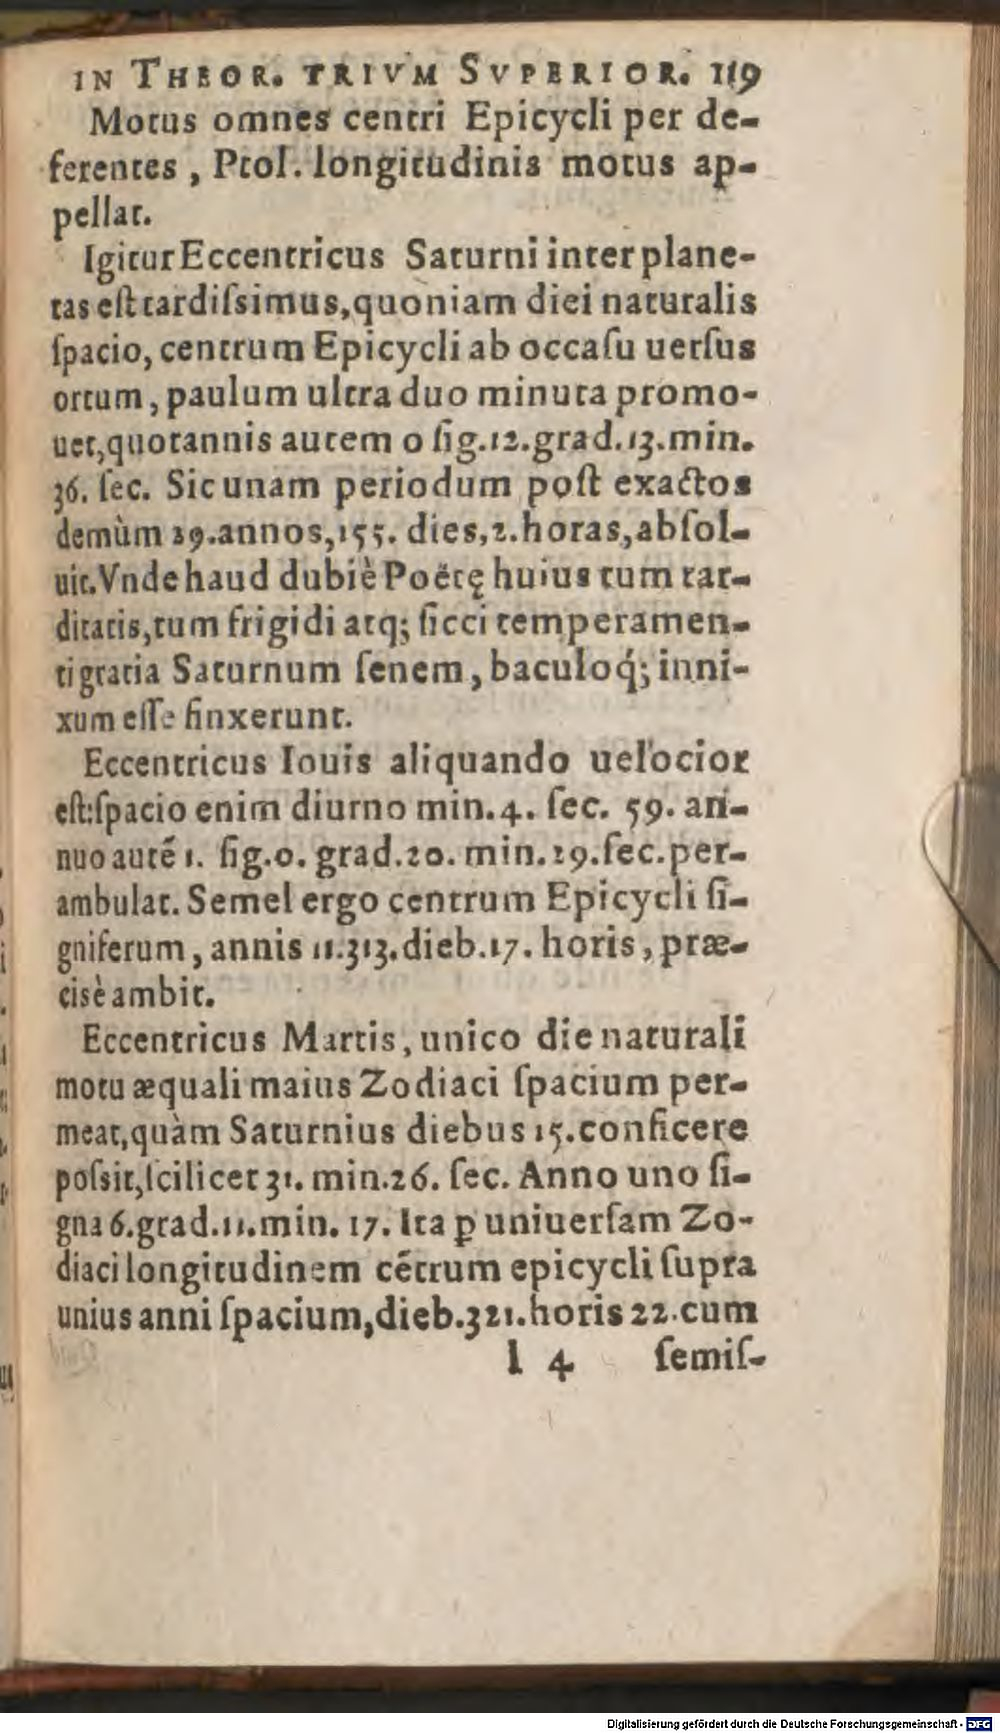 IN THEOR. TRIVM SVPERIOR. 119
Motus omnes centri Epicycli per de-
ferentes, Ptol. longitudinis motus ap-
pellat.
Igitur Eccentricus Saturni inter plane-
tas eſt tardiſsimus, quoniam diei naturalis
ſpacio, centrum Epicycli ab occaſu uerſus
ortum, paulum ultra duo minuta promo-
uet, quotannis autem o ſig. 12. grad. 13. min.
36. ſec. Sic unam periodum poſt exactos
demùm 29. annos, 155. dies, 2. horas, abſol-
uit. Vnde haud dubiè Poëtę huius tum tar-
ditatis, tum frigidi atq; ſicci temperamen-
ti gratia Saturnum ſenem, baculoq́; inni-
xum eſſe finxerunt.
Eccentricus Iouis aliquando uelocior
eſt: ſpacio enim diurno min. 4. ſec. 59. an-
nuo auté 1. ſig. 0. grad. 20. min. 29. ſec. per-
ambulat. Semel ergo centrum Epicycli ſi-
gniferum, annis 11. 313. dieb. 17. horis, præ-
cisè ambit.
Eccentricus Martis, unico die naturali
motu æquali maius Zodiaci ſpacium per-
meat, quàm Saturnius diebus 15. conficere
poſsit, ſcilicet 31. min. 26. ſec. Anno uno ſi-
gna 6. grad. 11. min. 17. Ita ꝑ uniuerſam Zo-
diaci longitudinem cétrum epicycli ſupra
unius anni ſpacium, dieb. 321. horis 22. cum
l 4 ſemiſ-
Digitalisierung gefördert durch die Deutsche Forschungsgemeinschaft - DFG